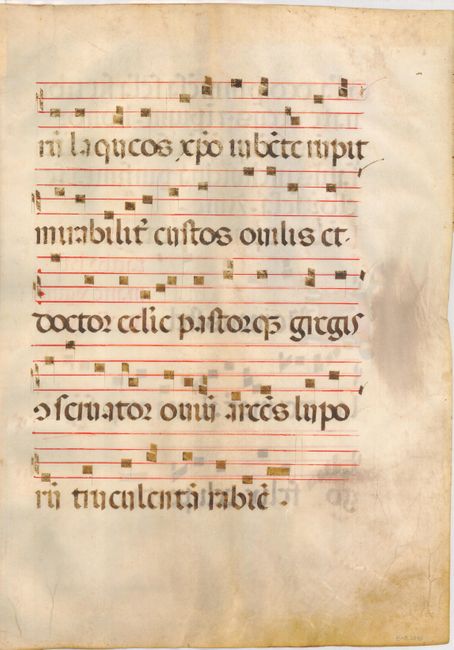 rũ laqueos xp̃o iubẽte rupit
mirabilit᷑ custos ouilis et
doctor ecl̃ie pastorq3 gregis
ɔseruator ouiũ arcẽs lupo
rũ truculentã rabiẽ.